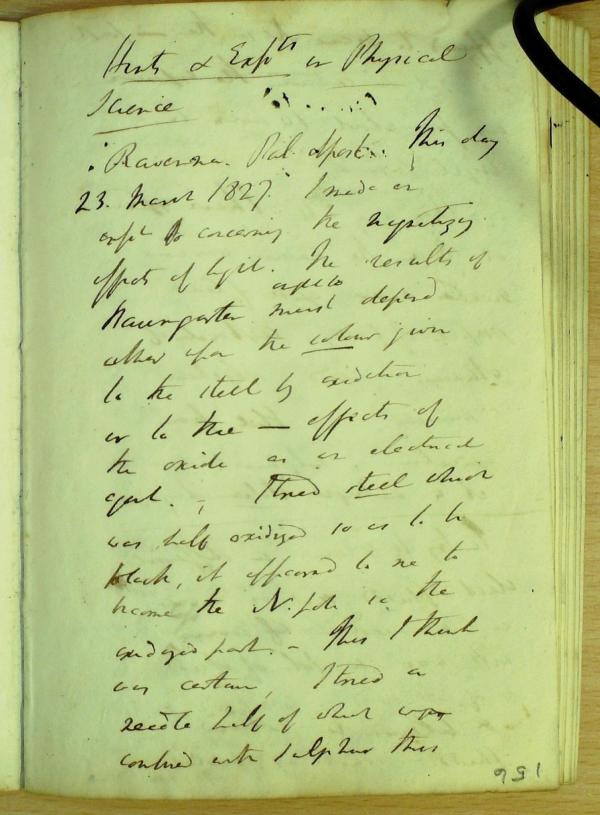 Hints & Exp.ts in Physical
Science
Ravenna. Pal. Apost.. This day
23. March 1827. I made an
exp.t to concerning the magnetizing
effects of light. The results of
Baumgarten expts must depend
either upon the colour given
to the steel by oxidation
or to the — effects of
the oxide as an electrical
agent. — I tried steel which
was half oxidized so as to be
black, it appeared to me to
become the N. pole in the
oxidized part. — This I think
was certain, I tried a
needle half of which was
combined with sulphur this
156